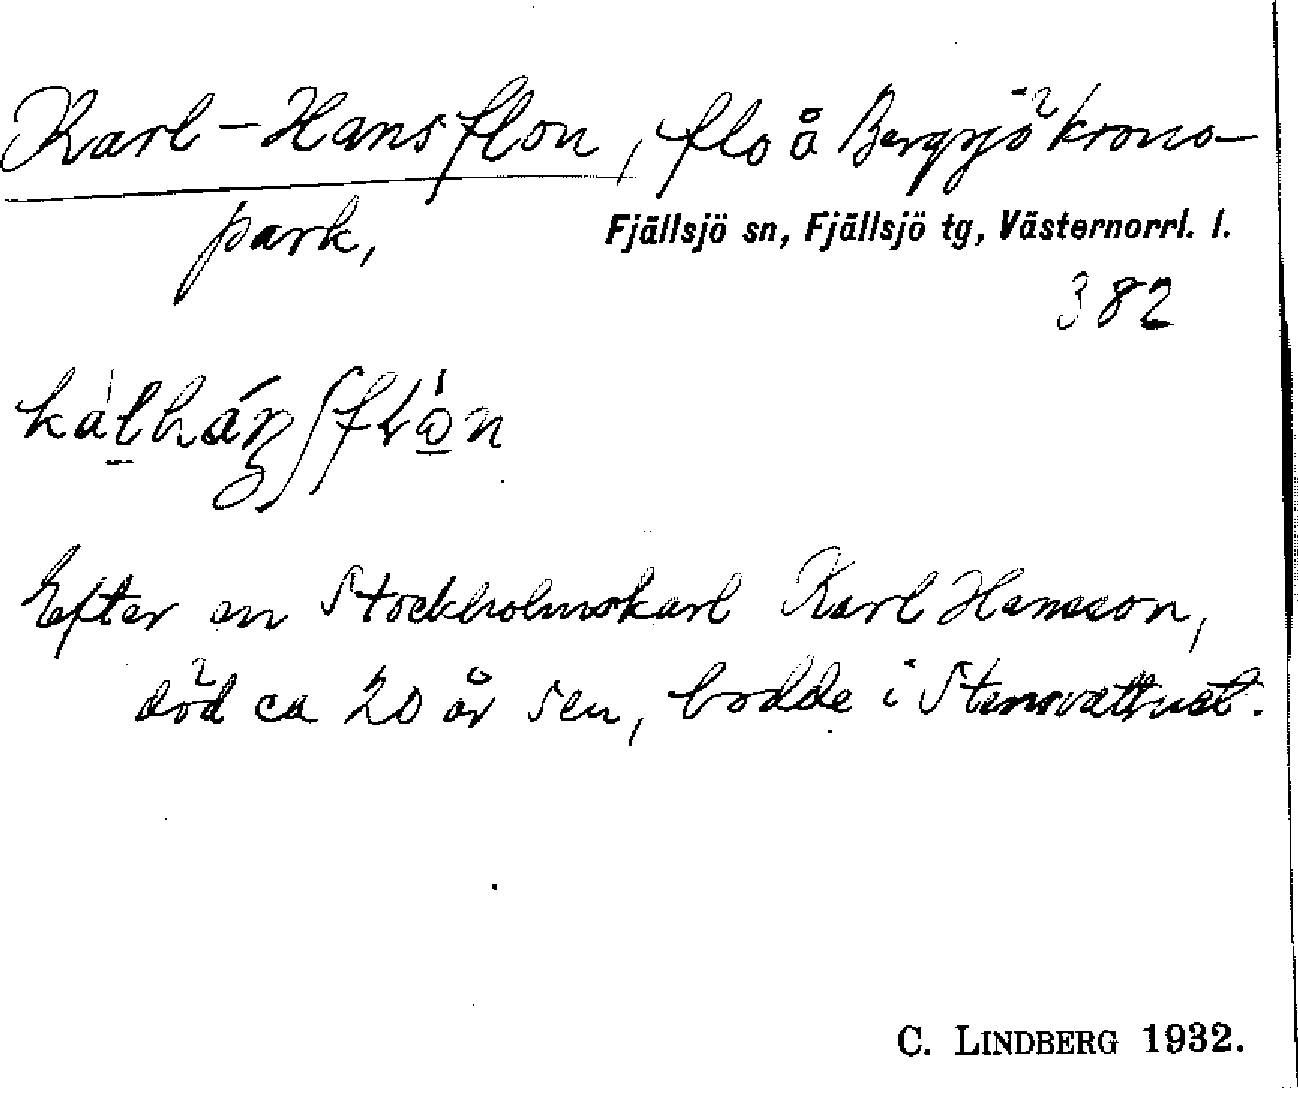 Karl-Hansflon, flo å Bergsjö krono-
park,
Fjällsjö sn, Fjällsjö tg, Västernorrl. l.
382
Efter en Stockholmskarl Karl Hansson,
död ca 20 år sen, bodde i Stensvattnet.
C. LINDBERG 1932.